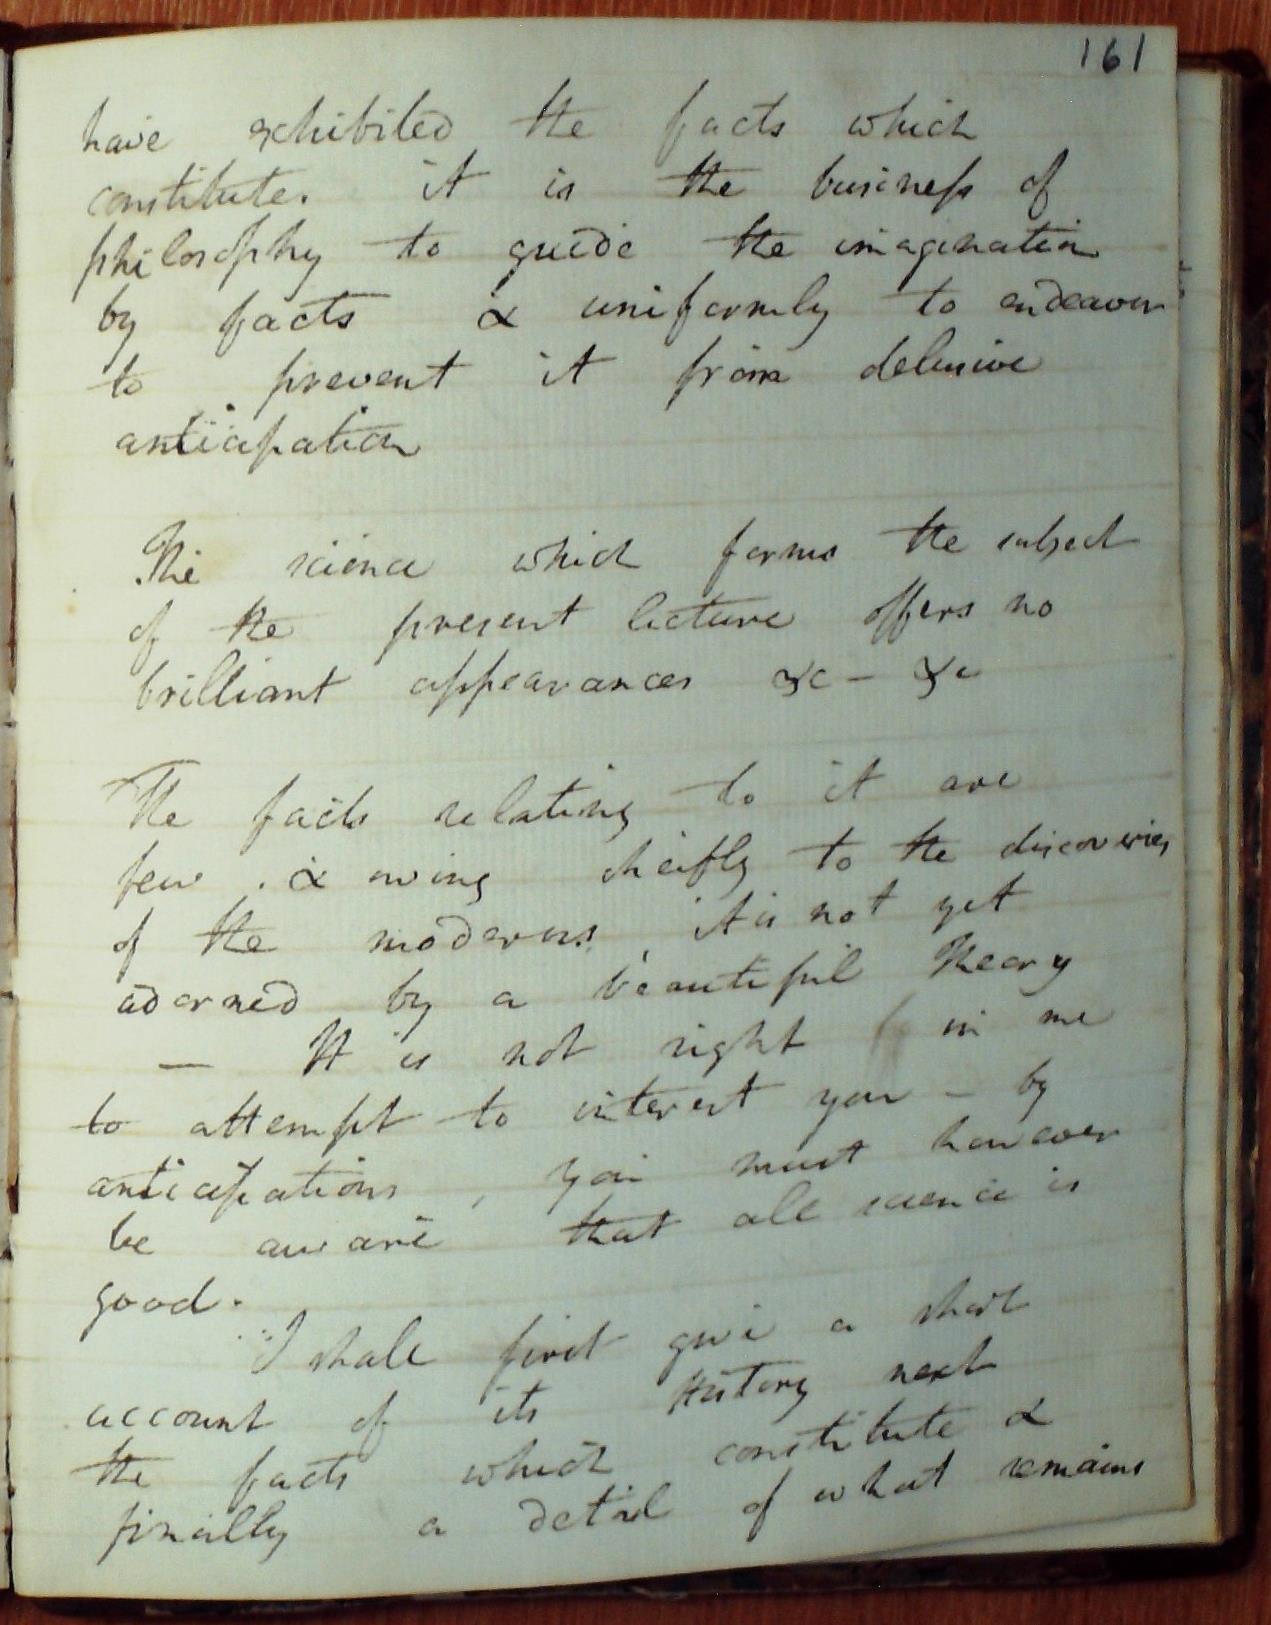 161
have exhibited the facts which
constitute. it is the business of
philosophy to guide the imagination
by facts & uniformly to endeavour
to prevent it from delusive
anticipation
The science which forms the subject
of the present lecture offers no
brilliant appearances &c - &c
The facts relating to it are
few. & owing cheifly to the discoveries
of the moderns, it is not yet
adorned by a beautiful Theory
— It is not right in me
to attempt to interest you – by
anticipations, you must however
be aware that all science is
good.
I shall first give a short
account of its History next
the facts which constitute &
finally a detail of what remains